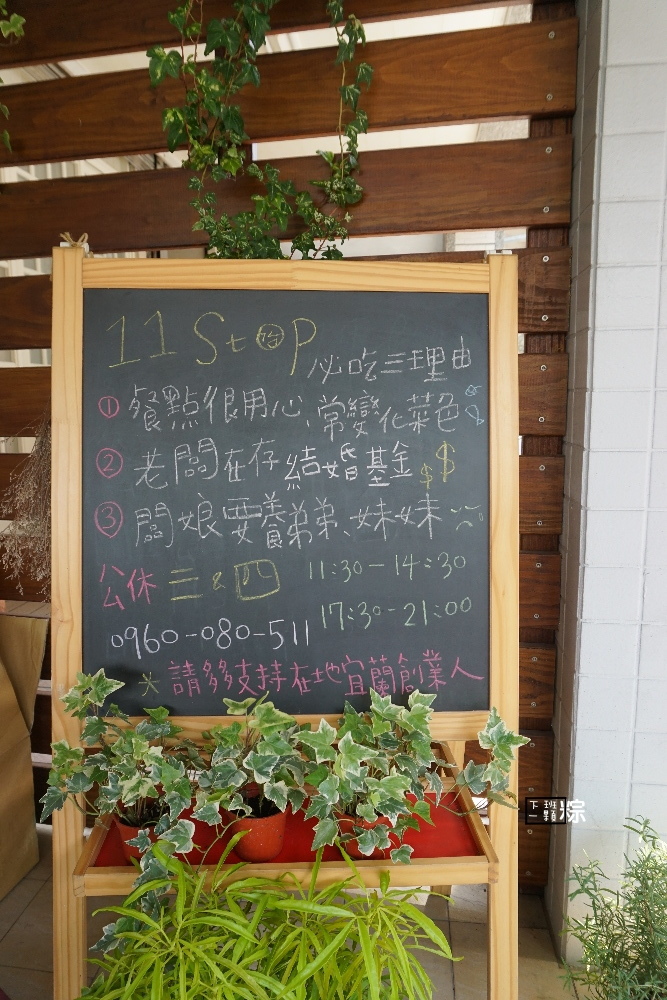 11 Stop 必吃三理由
① 餐點很用心、常變化菜色
② 老闆在存結婚基金 $$
③ 闆娘要養弟弟、妹妹
公休 三 & 四 11:30-14:30
17:30-21:00
0960-080-511
* 請多多支持在地宜蘭創業人
下班
一顆
粽